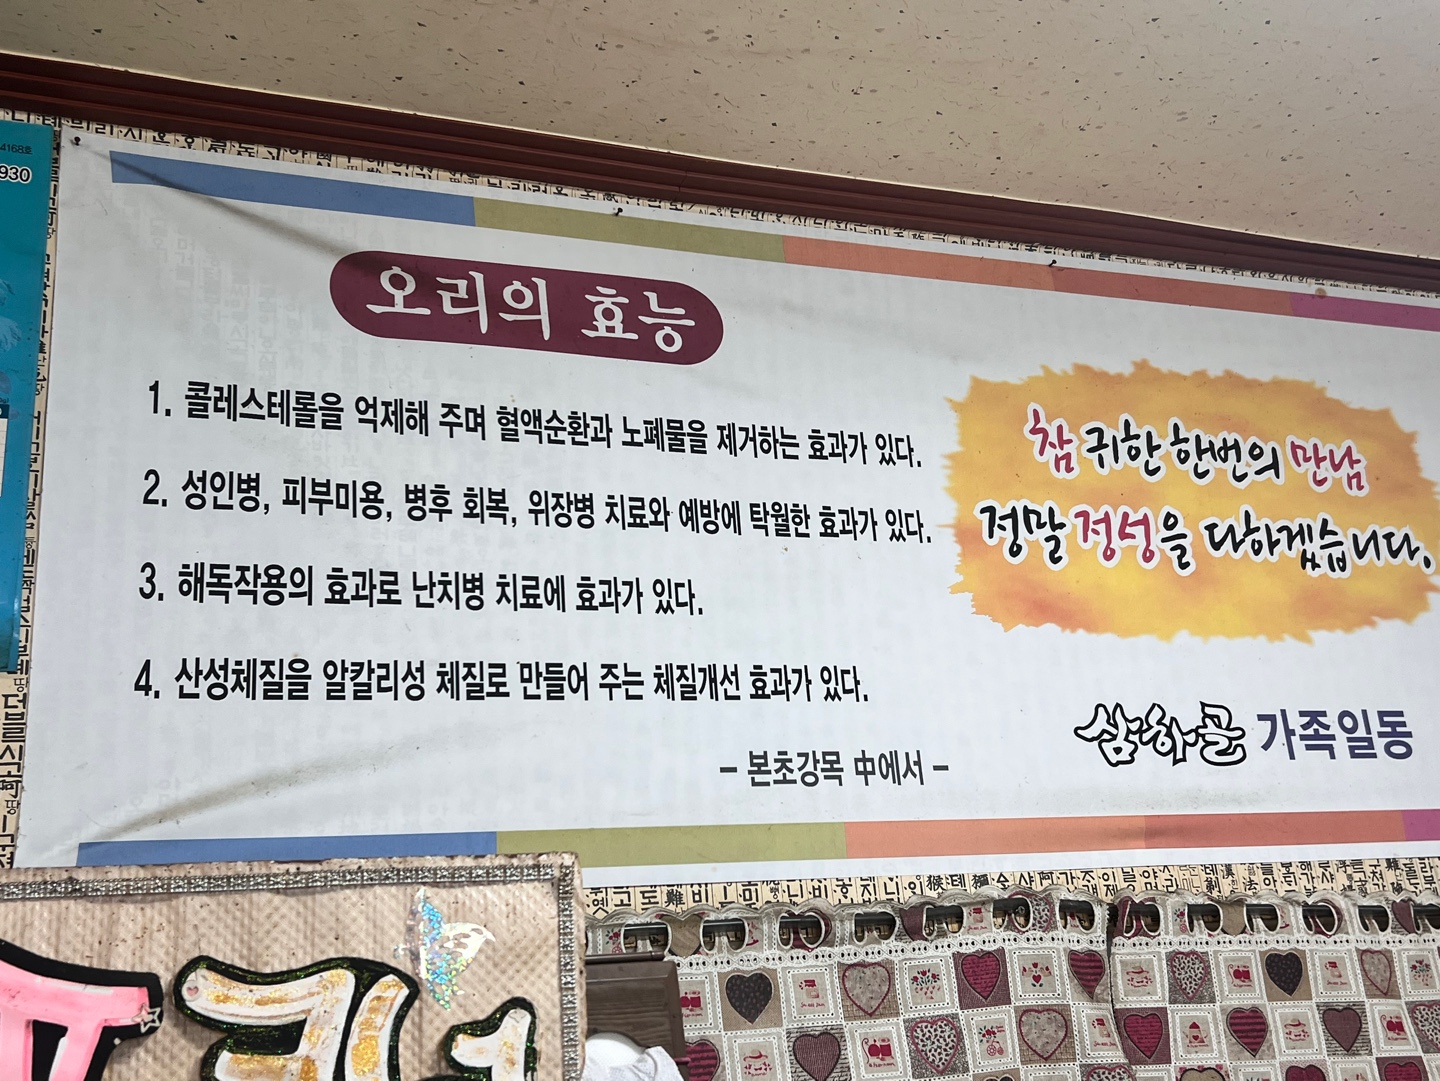 오리의 효능
1. 콜레스테롤을 억제해 주며 혈액순환과 노폐물을 제거하는 효과가 있다.
2. 성인병, 피부미용, 병후 회복, 위장병 치료와 예방에 탁월한 효과가 있다.
3. 해독작용의 효과로 난치병 치료에 효과가 있다.
4. 산성체질을 알칼리성 체질로 만들어 주는 체질개선 효과가 있다.
- 본초강목 中에서 -
참 귀한 한번의 만남
정말 정성을 다하겠습니다.
삼하골 가족일동
4168호
930